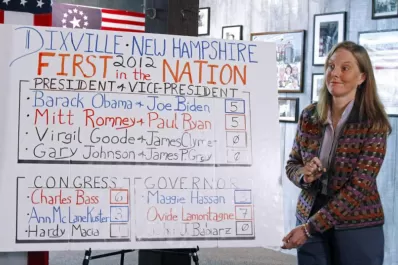 DIXVILLE · NEW HAMPSHIRE
FIRST 2012 in the NATION
PRESIDENT & VICE-PRESIDENT
Barack Obama & Joe Biden 5
Mitt Romney & Paul Ryan 5
Virgil Goode & James Clymer 0
Gary Johnson & James P. Gray 0
CONGRESS
Charles Bass 6
Ann McLane Kuster 3
Hardy Macia 1
GOVERNOR
Maggie Hassan 3
Ovide Lamontagne 7
J Babiarz 0